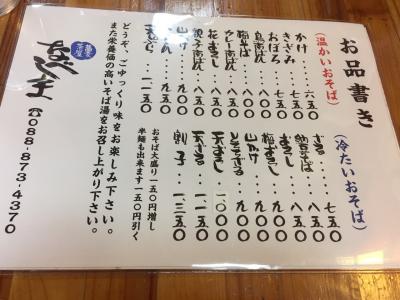 お品書き
(温かいおそば)
かけ・・・・六五〇
きざみ・・・七五〇
おぼろ・・・七五〇
鳥南ばん・・・八五〇
梅そば・・・八五〇
カレー南ばん・・・九〇〇
花まき・・・九〇〇
親子南ばん・・・九〇〇
山かけ・・・九〇〇
天ぷら・・・一一五〇
(冷たいおそば)
ざる・・・・七五〇
納豆そば・・・八五〇
おろし・・・八五〇
梅おろし・・・九〇〇
山かけ・・・九〇〇
とろろざる・・・九〇〇
天ざる・・・一二五〇
割子・・・一三五〇
おそば大盛り一五〇円増し
半麺も出来ます一五〇円引く
どうぞ、ごゆっくり味をお楽しみ下さい。
また栄養価の高いそば湯をお召し上がり下さい。
蕎麦
茶屋
☎088-873-4370